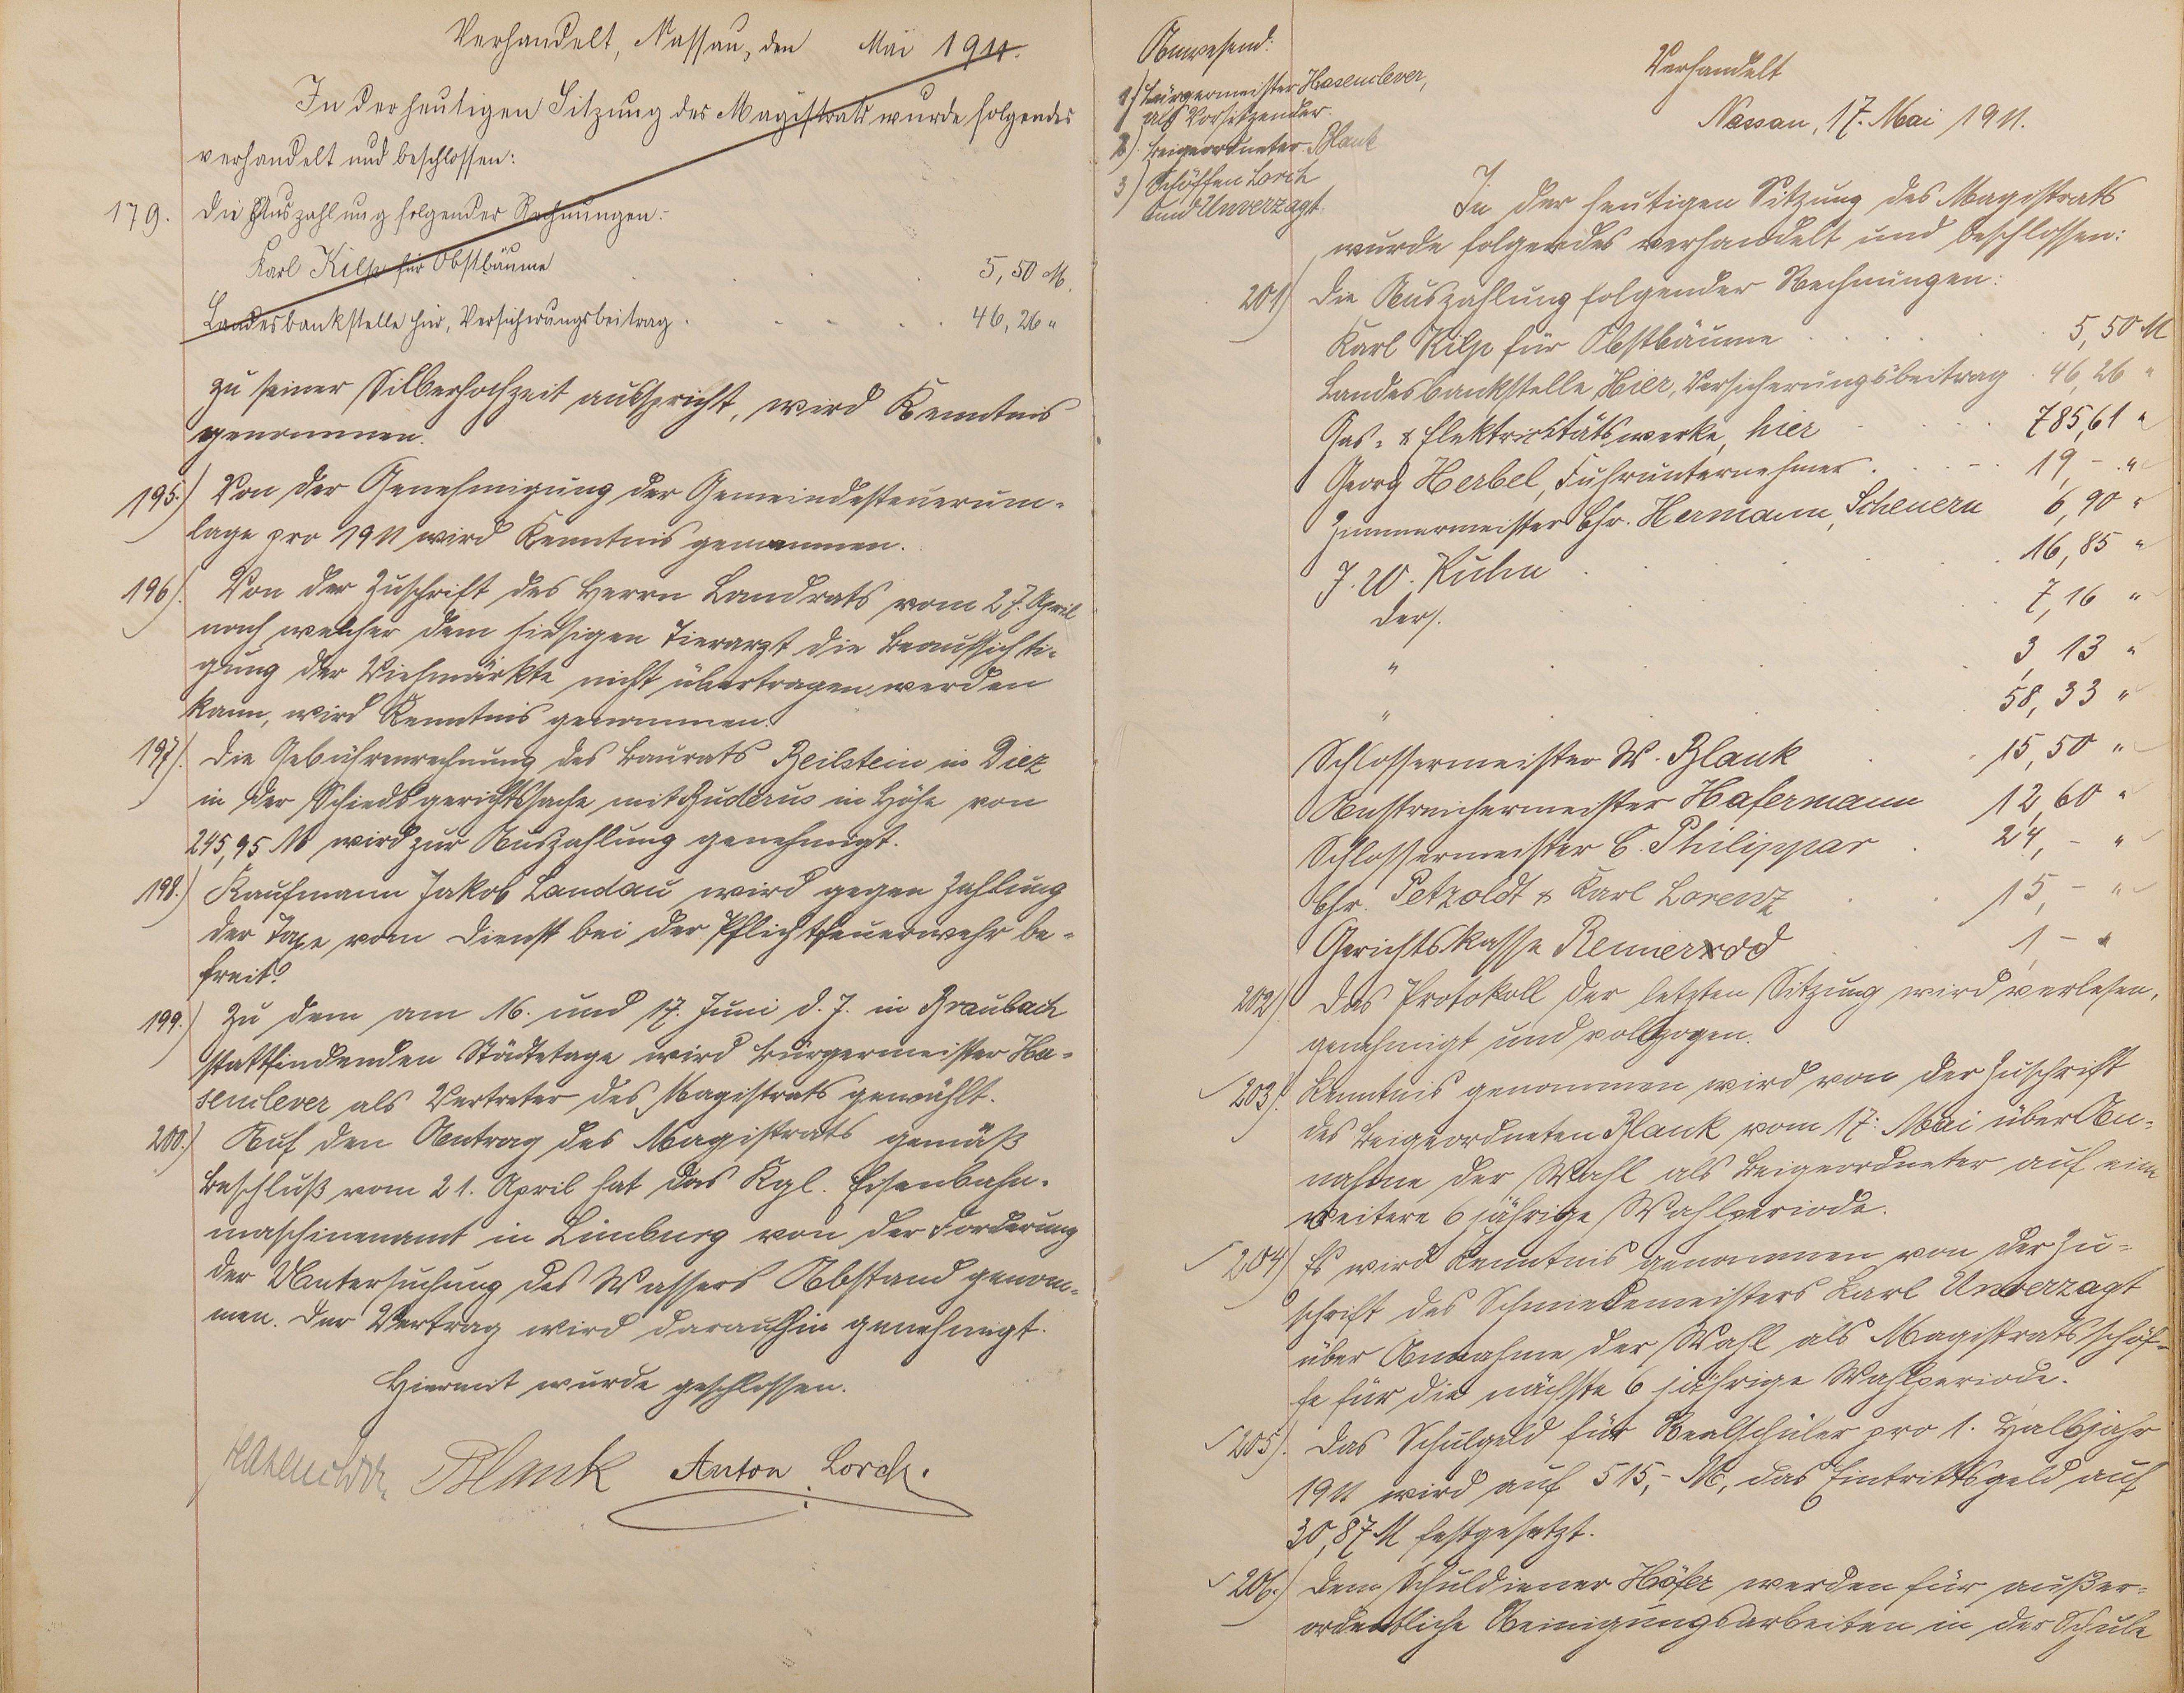 Verhandelt, Nassau, den Mai 1911.
In der heutigen Sitzung des Magistrats wurde folgendes
verhandelt und beschlossen:
179. Die Auszahlung folgender Rechnungen:
Karl Kilp für Obstbäume . . . . 5,50 M.
Landesbankstelle hier, Versicherungsbeitrag . . . . 46,26 "
zu seiner Silberhochzeit ausspricht, wird Kenntnis
genommen.
195.) Von der Genehmigung der Gemeindesteuerum-
lage pro 1911 wird Kenntnis genommen.
196.) Von der Zuschrift des Herrn Landrats vom 27. April
nach welcher dem hiesigen Tierarzt die Beaufsichti-
gung der Viehmärkte nicht übertragen werden
kann, wird Kenntnis genommen.
197.) Die Gebührenrechnung des Baurats Beilstein in Diez
in der Schiedsgerichtssache mit Buderus in Höhe von
245,95 M wird zur Auszahlung genehmigt.
198.) Kaufmann Jakob Landau wird gegen Zahlung
der Taxe vom Dienst bei der Pflichtfeuerwehr be-
freit.
199.) Zu dem am 16. und 17. Juni d. J. in Braubach
stattfindenden Städtetage wird Bürgermeister Ha-
senclever als Vertreter des Magistrats gewählt.
200.) Auf den Antrag des Magistrats gemäß
Beschluß vom 21. April hat das Kgl. Eisenbahn-
maschinenamt in Limburg von der Forderung
der Untersuchung des Wassers Abstand genom-
men. Der Vertrag wird daraufhin genehmigt.
Hiermit wurde geschlossen.
Hasenclever Blank Anton Lorch.
Anwesend:
1) Bürgermeister Hasenclever,
als Vorsitzender.
2) Beigeordneter Blank
3) Schöffen Lorch
und Unverzagt.
Verhandelt
Nassau, 17. Mai 1911.
In der heutigen Sitzung des Magistrats
wurde folgendes verhandelt und beschlossen:
201) Die Auszahlung folgender Rechnungen:
Karl Kilp für Obstbäume . . . . 5,50 M
Landesbankstelle Hier, Versicherungsbeitrag . 46,26 "
Gas- & Elektricitätswerke, hier . . . 785,61 "
Georg Herbel, Fuhrunternehmer . . . 19,- "
Zimmermeister Chr. Hermann, Scheuern 6,90 "
J. W. Kuhn . . . . 16,85 "
ders. . . . . 7,16 "
" . . . . 3,13 "
" . . . . 58,33 "
Schlossermeister W. Blank . . 15,50 "
Anstreichermeister Hafermann 12,60 "
Schlossermeister C. Philippar . 24,- "
Chr. Petzoldt & Karl Lorenz . . 15,- "
Gerichtskasse Rennerod . 1,- "
202) Das Protokoll der letzten Sitzung wird verlesen,
genehmigt und vollzogen.
203) Kenntnis genommen wird von der Zuschrift
des Beigeordneten Blank vom 17. Mai über An-
nahme der Wahl als Beigeordneter auf eine
weitere 6 jährige Wahlperiode.
204) Es wird Kenntnis genommen von der Zu-
schrift des Schmiedemeisters Karl Unverzagt
über Annahme der Wahl als Magistratsschöf-
fe für die nächste 6 jährige Wahlperiode.
205) Das Schulgeld für Realschüler pro 1. Halbjahr
1911 wird auf 515,- M, das Eintrittsgeld auf
30,87 M festgesetzt.
206.) Dem Schuldiener Höfer werden für außer-
ordentliche Reinigungsarbeiten in der Schule